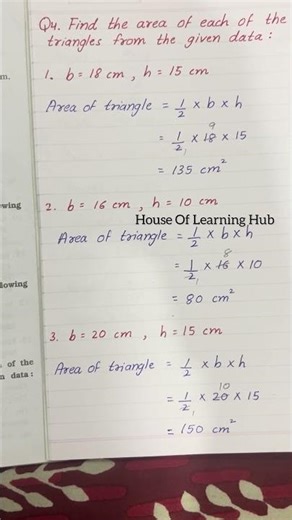 Q4. Find the area of each of the
triangles from the given data :
m.
1. b = 18 cm , h = 15 cm
Area of triangle = 1/2 x b x h
9
= 1/2 x 18 x 15
1
= 135 cm²
wing
2. b = 16 cm , h = 10 cm
House Of Learning Hub
Area of triangle = 1/2 x b x h
8
= 1/2 x 16 x 10
1
= 80 cm²
lowing
3. b = 20 cm , h = 15 cm
of the
n data :
Area of triangle = 1/2 x b x h
10
= 1/2 x 20 x 15
1
= 150 cm²